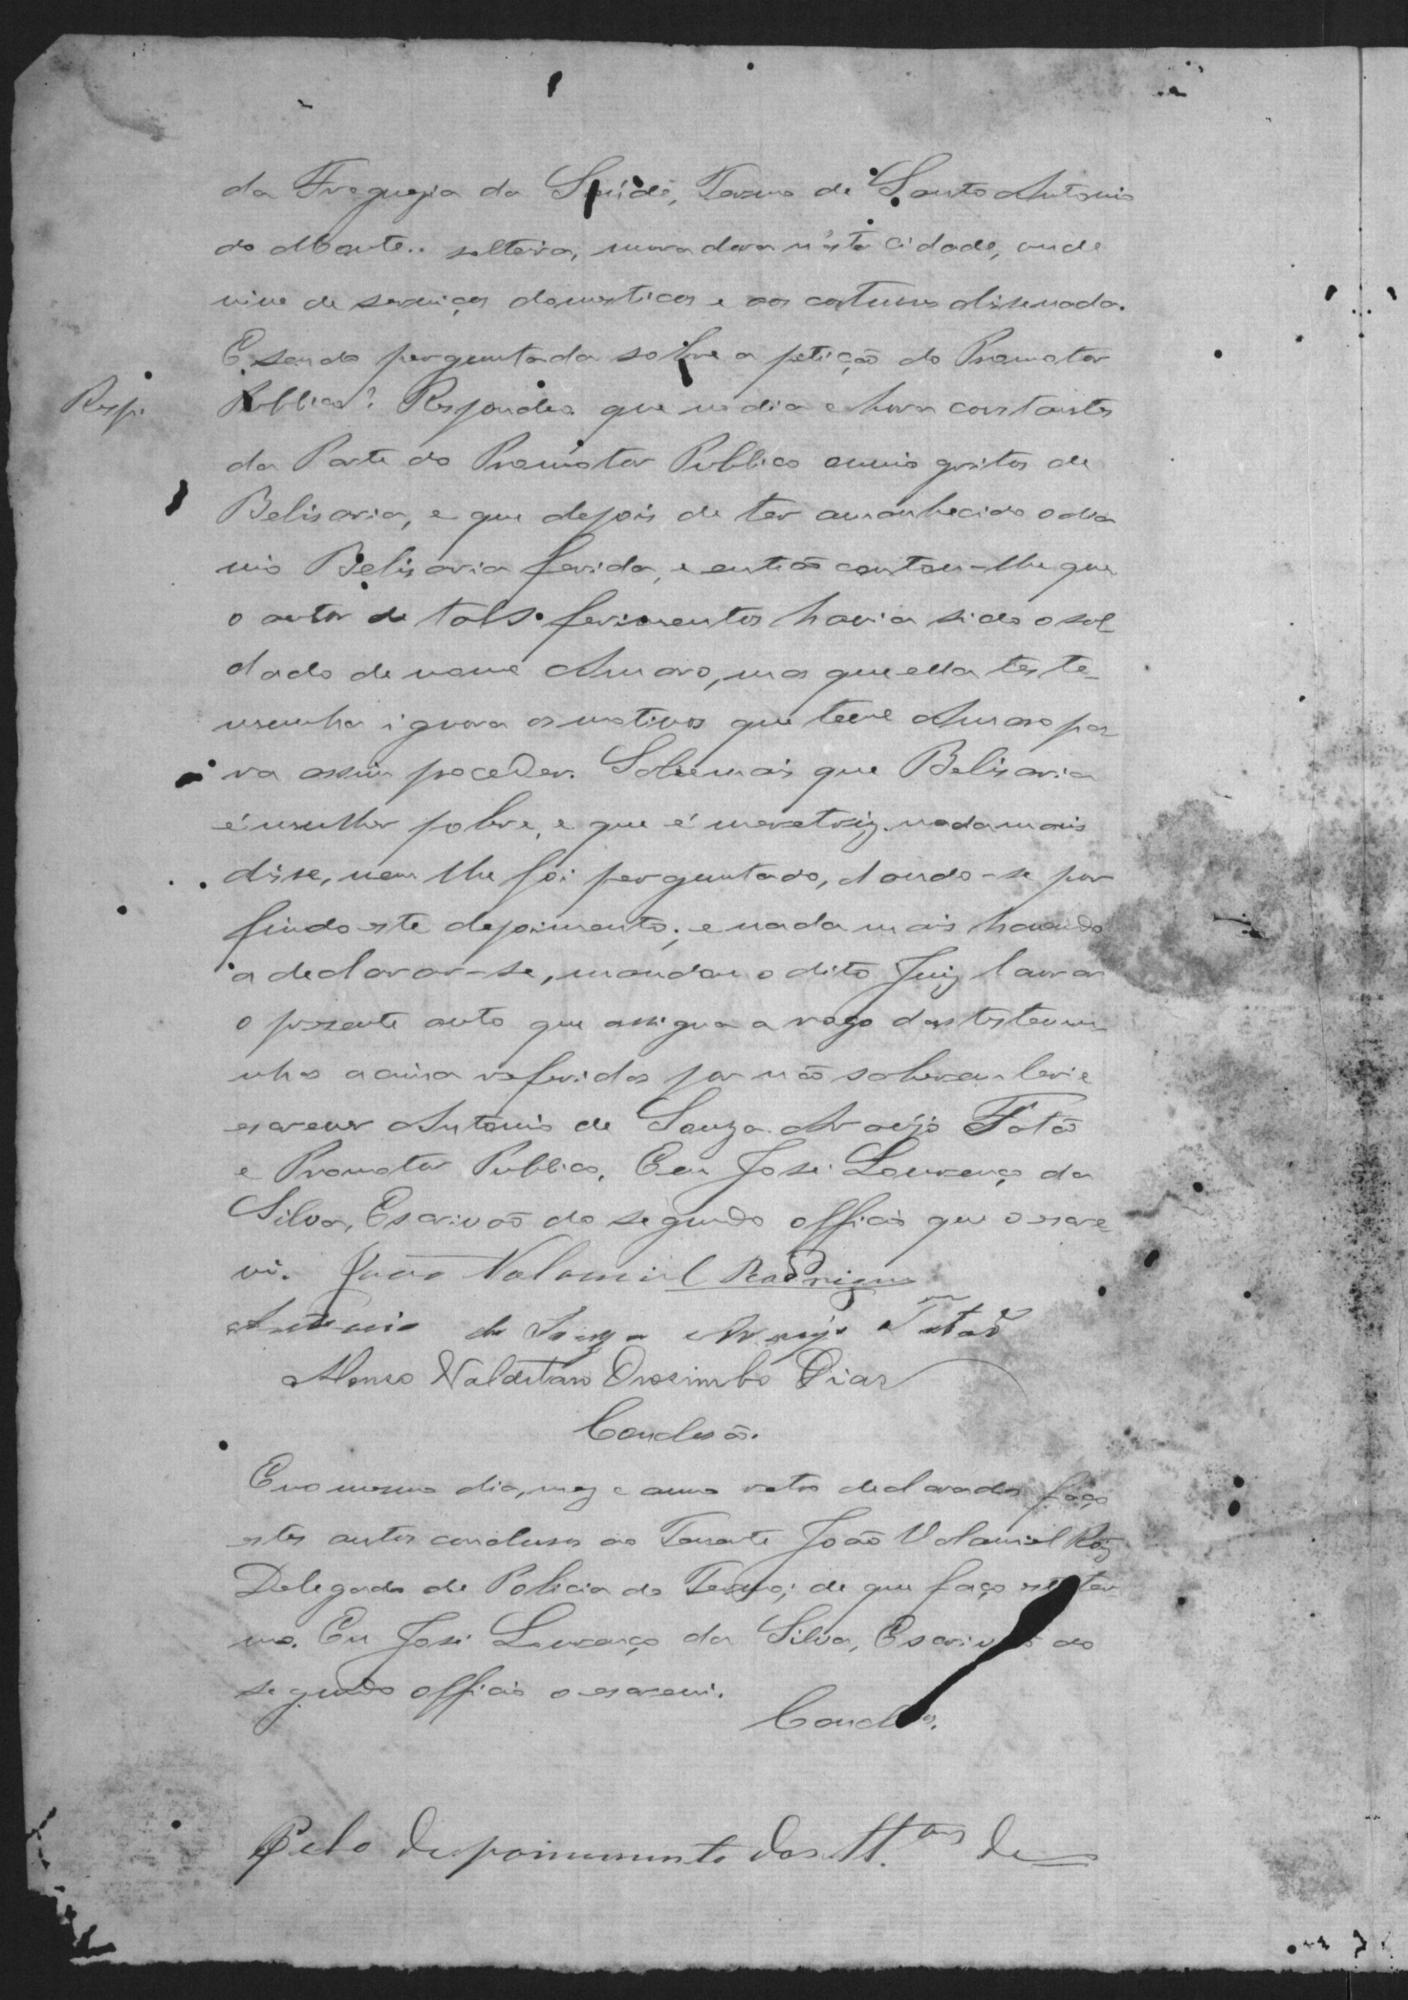 da Freguezia da Saúde, Termo de Santo Antonio
do Monte.. solteira, moradora n'esta cidade, onde
vive de serviços domesticos e aos costumes disse nada.
E sendo perguntada sobre a petição do Promotor
Respº
Publico? Respondeo que no dia e hora constantes
da Parte do Promotor Publico ouvio gritos de
Belisaria, e que depois de ter amanhecido o dia
vio Belisaria ferida, e então contou-lhe que
o autor de taes ferimentos havia sido o sol-
dado de nome Amaro, mas que ella teste-
munha ignora os motivos que teve Amaro pa-
ra assim proceder. Sabe mais que Belisaria
é mulher pobre, e que é meretriz. nada mais
disse, nem lhe foi perguntado, dando-se por
findo este depoimento; e nada mais havendo
a declarar-se, mandou o dito Juiz lavrar
o presente auto que assigna a rogo das testemu-
nhas acima referidas por não saberem ler e
escrever Antonio de Souza Araújo Tatão
e Promotor Publico. Eu José Lourenço da
Silva, Escrivão do segundo officio que o escre-
vi. João Valamiel Rodrigues
Antonio de Souza Araujo Tatão
Afonso Valdetaro Orosimbo Dias
Conclusão.
E no mesmo dia, mez e anno retro declarados faço
estes autos conclusos ao Tenente João Valamiel Roiz
Delegado de Policia do Termo; de que faço este ter-
mo. Eu José Lourenço da Silva, Escrivão do
segundo officio o escrevi.
Conclos.
Pelo depoimmento das tt.as de